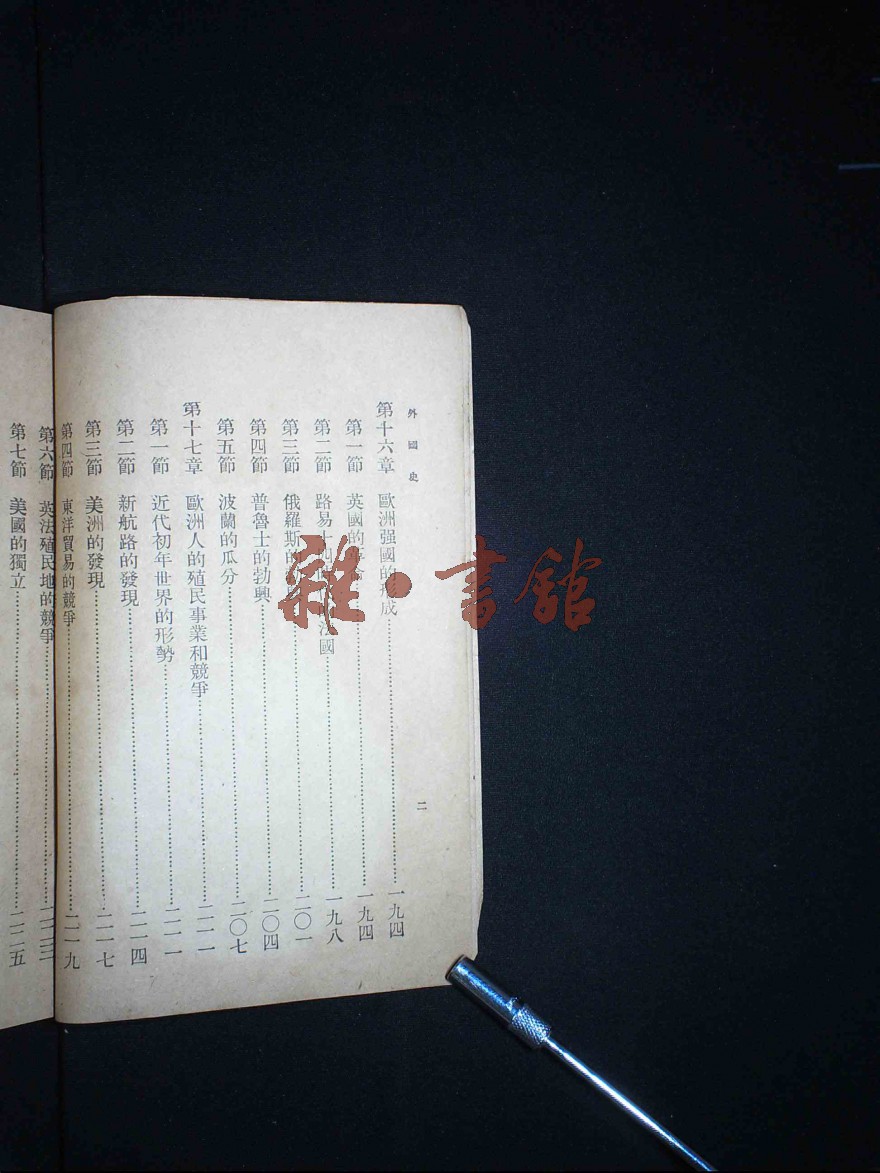 外國史
二
第十六章 歐洲强國的形成……一九四
第一節 英國的革命……一九四
第二節 路易十四 法國……一九八
第三節 俄羅斯的……二〇一
第四節 普魯士的勃興……二〇四
第五節 波蘭的瓜分……二〇七
第十七章 歐洲人的殖民事業和競爭……二一一
第一節 近代初年世界的形勢……二一一
第二節 新航路的發現……二一四
第三節 美洲的發現……二一七
第四節 東洋貿易的競爭……二一九
第六節 英法殖民地的競爭……二二三
第七節 美國的獨立……二二五
雜·書館